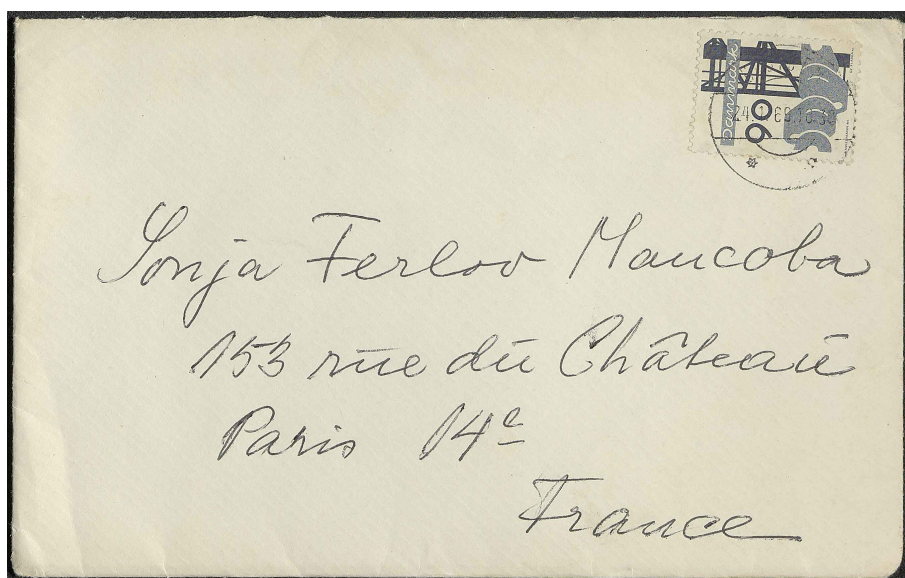 Danmark
90
24.1.69.16.30
Sonja Ferlov Mancoba
153 rue du Château
Paris 14e
France